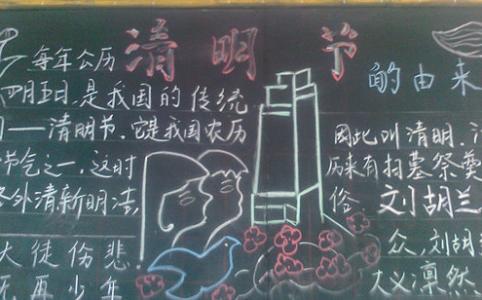 清明节
的由来
每年公历
四月五日,是我国的传统
——清明节,它是我国农历
节气之一,这时
外清新明洁,
因此叫清明,
历来有扫墓祭奠
俗
刘胡兰
大徒伤悲
再少年
众,刘胡
大义凛然